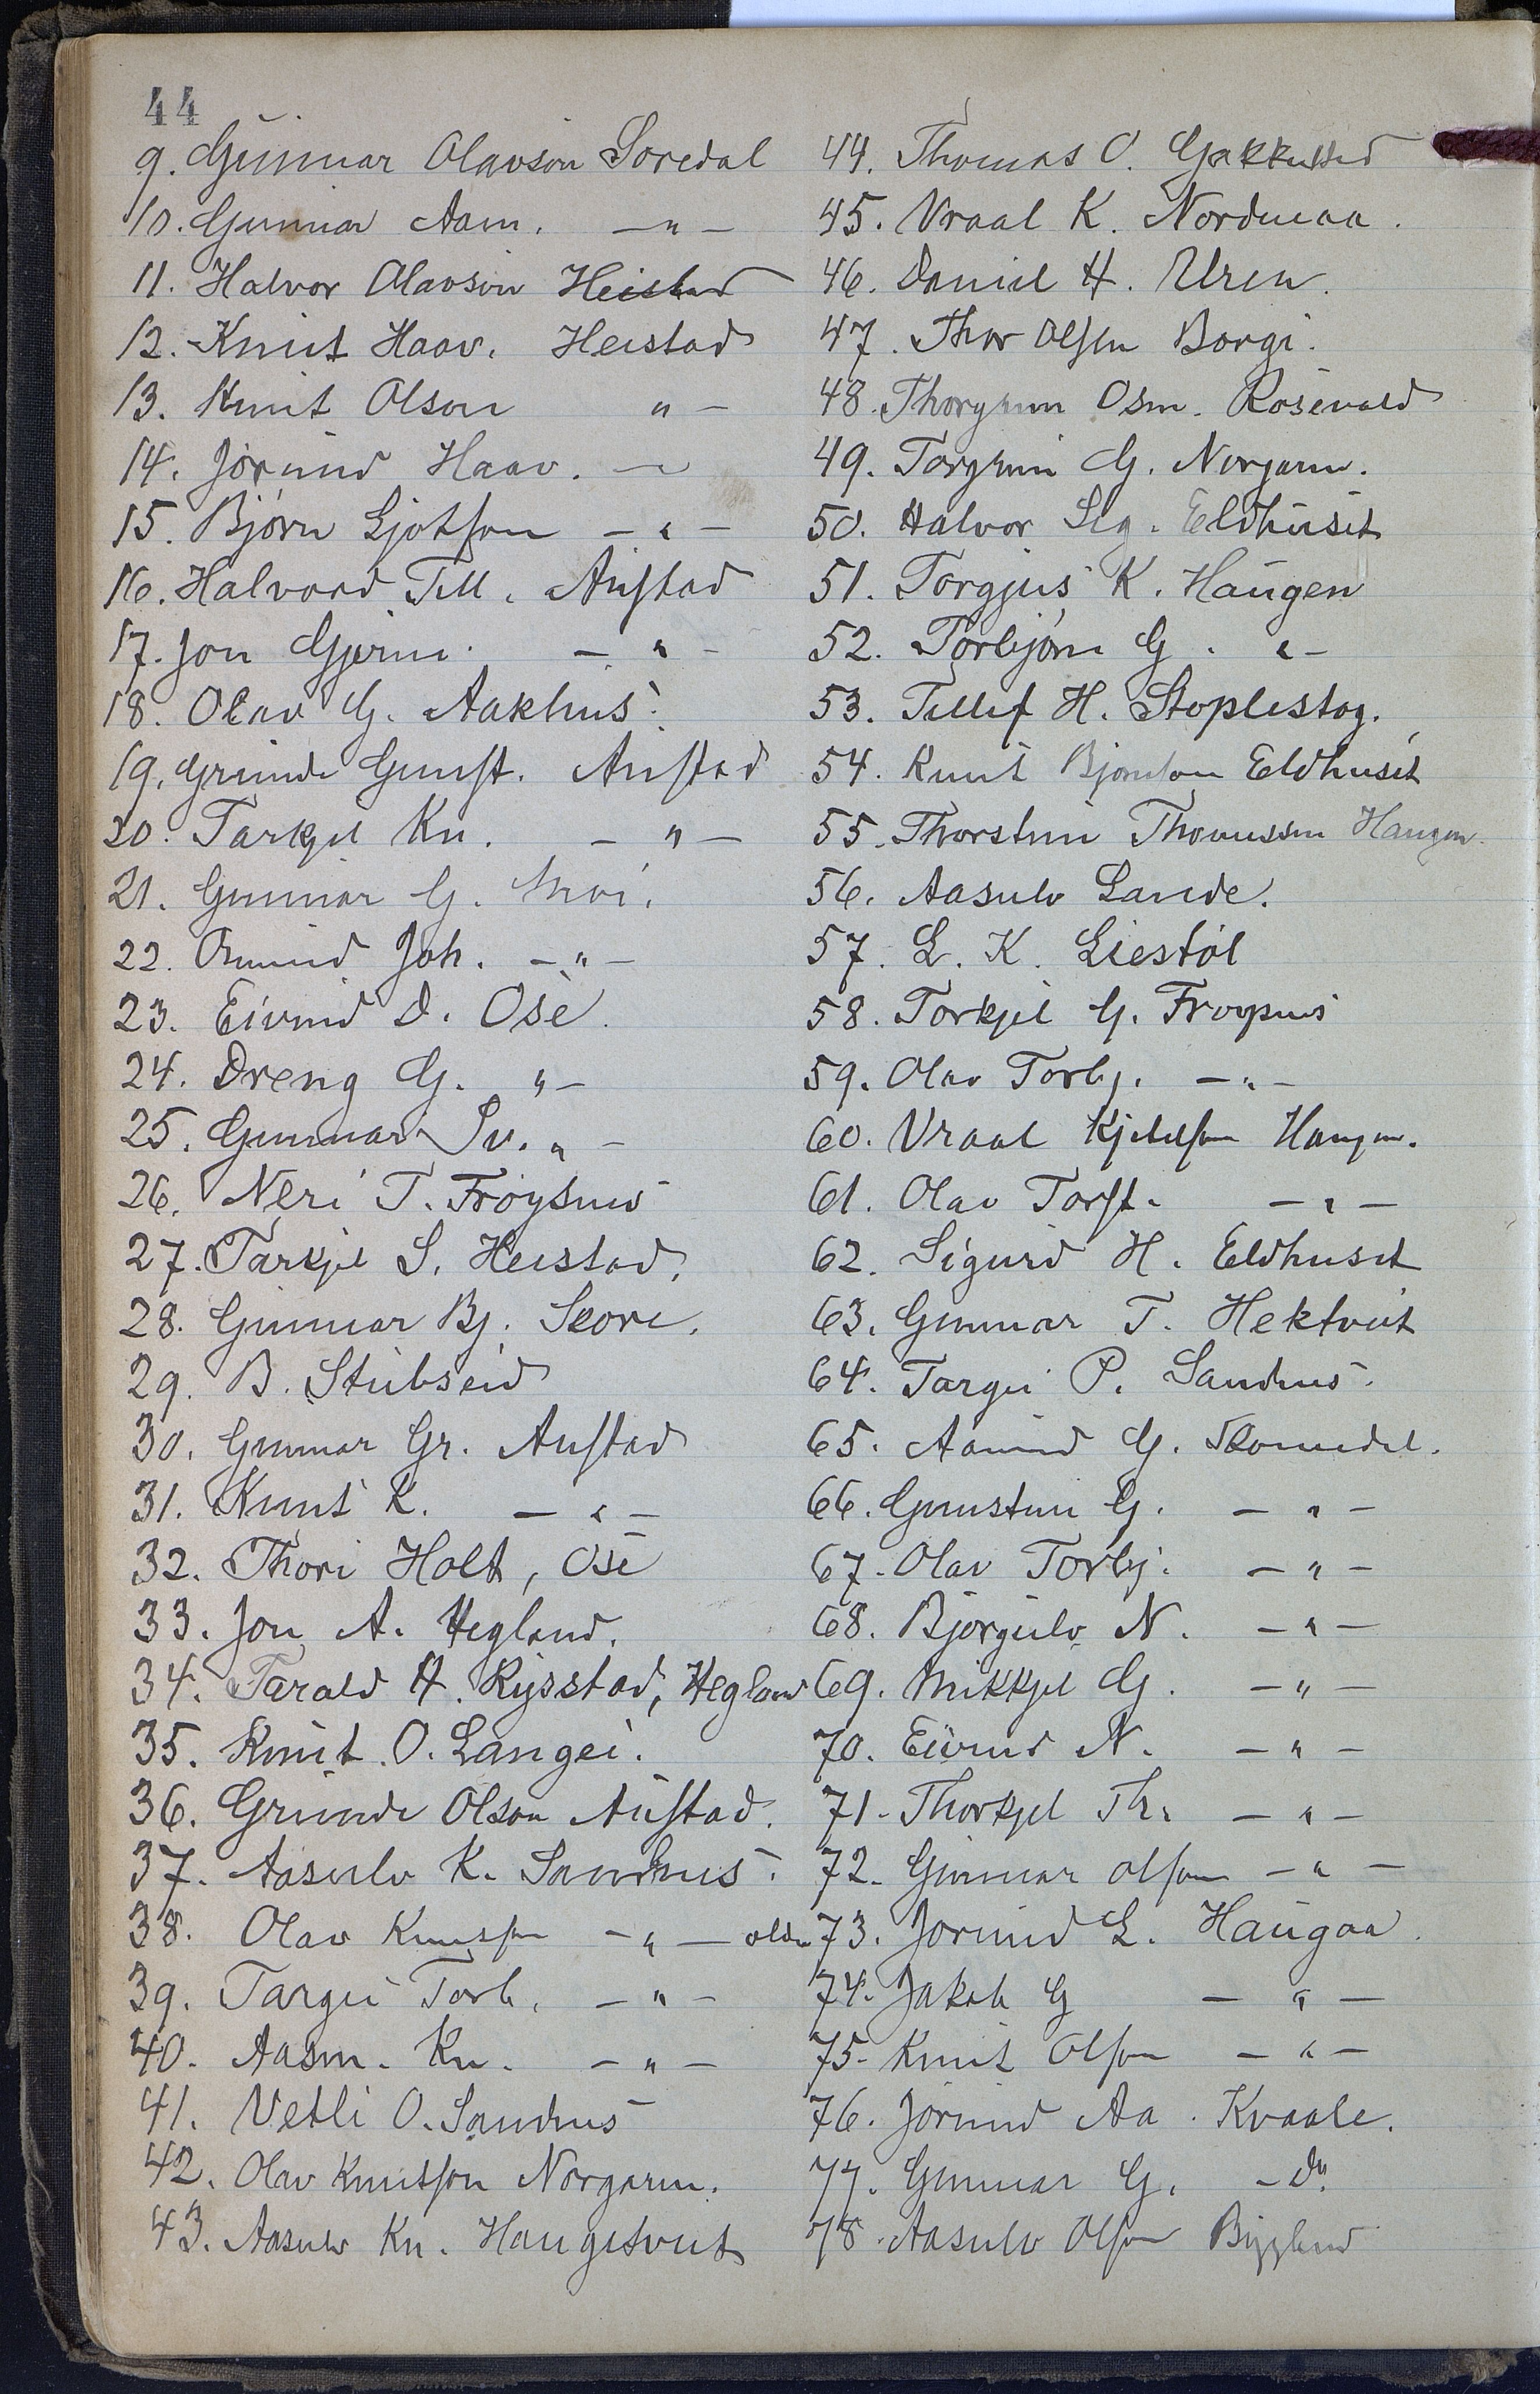 44
9. Gunnar Olavson Sordal
10. Gunnar Aam. -"-
11. Halvor Olavson Heistad
12. Knut Haav. Heistad
13. Knut Olson "-
14. Jórund Haav. -"-
15. Bjórn Ljotson -"-
16. Halvord Tell. Austad
17. Jon Gjerm. -"-
18. Olav G. Aakhus.
19. Grunde Gunst. Austad
20. Tarkjel Kn. -"-
21. Gunnar G. Moi.
22. Omund Joh. -"-
23. Eivind D. Ose.
24. Dreng G. "-
25. Gunnar Sv. "-
26. Neri T. Fróysnes
27. Tarkjel S. Heistad.
28. Gunnar Bj. Skore.
29. B. Stubseid
30. Gunnar Gr. Austad
31. Knut K. -"-
32. Thore Holt, Ose
33. Jon A. Hegland.
34. Tarald H. Rysstad, Hegland
35. Knut O. Langei.
36. Grunde Olson Austad.
37. Aasulv K. Sandnes.
38. Olav Knutson -"- olde
39. Targei Torb. -"-
40. Aasm. Kn. -"-
41. Vetli O. Sandnes
42. Olav Knutson Norgarn.
43. Aasulv Kn. Haugetveit
44. Thomas O.
45. Vraal K. Nordmaa.
46. Daniel H. Uren.
47. Thor Olsen Borgi.
48. Thorgrim Osm. Rosevald
49. Torgrim G. Norgarn.
50. Halvor Sig. Eldhuset
51. Torgjus K. Haugen
52. Torbjórn G. "-
53. Tellef H. Stoplestog.
54. Knut Bjornson Eldhuset
55. Thorstein Thomassen Haugen.
56. Aasulv Lande.
57. L. K. Liestól
58. Torkjel G. Froysnes
59. Olav Torbj. -"-
60. Vraal Kjetelson Haugen.
61. Olav Torst. -"-
62. Sigurd H. Eldhuset
63. Gunnar T. Hektveit
64. Targei P. Sandnes.
65. Aanund G. Skomedal.
66. Gunstein G. -"-
67. Olav Torbj. -"-
68. Bjorgulv N. -"-
69. Mikkjel G. -"-
70. Eivind N. -"-
71. Thorkjel Th. -"-
72. Gunnar Olson -"-
73. Jorund L. Haugaa.
74. Jakob G -"-
75. Knut Olson -"-
76. Jórund Aa. Kvaale.
77. Gunnar G. -do.
78. Aasulv Olson Bygland